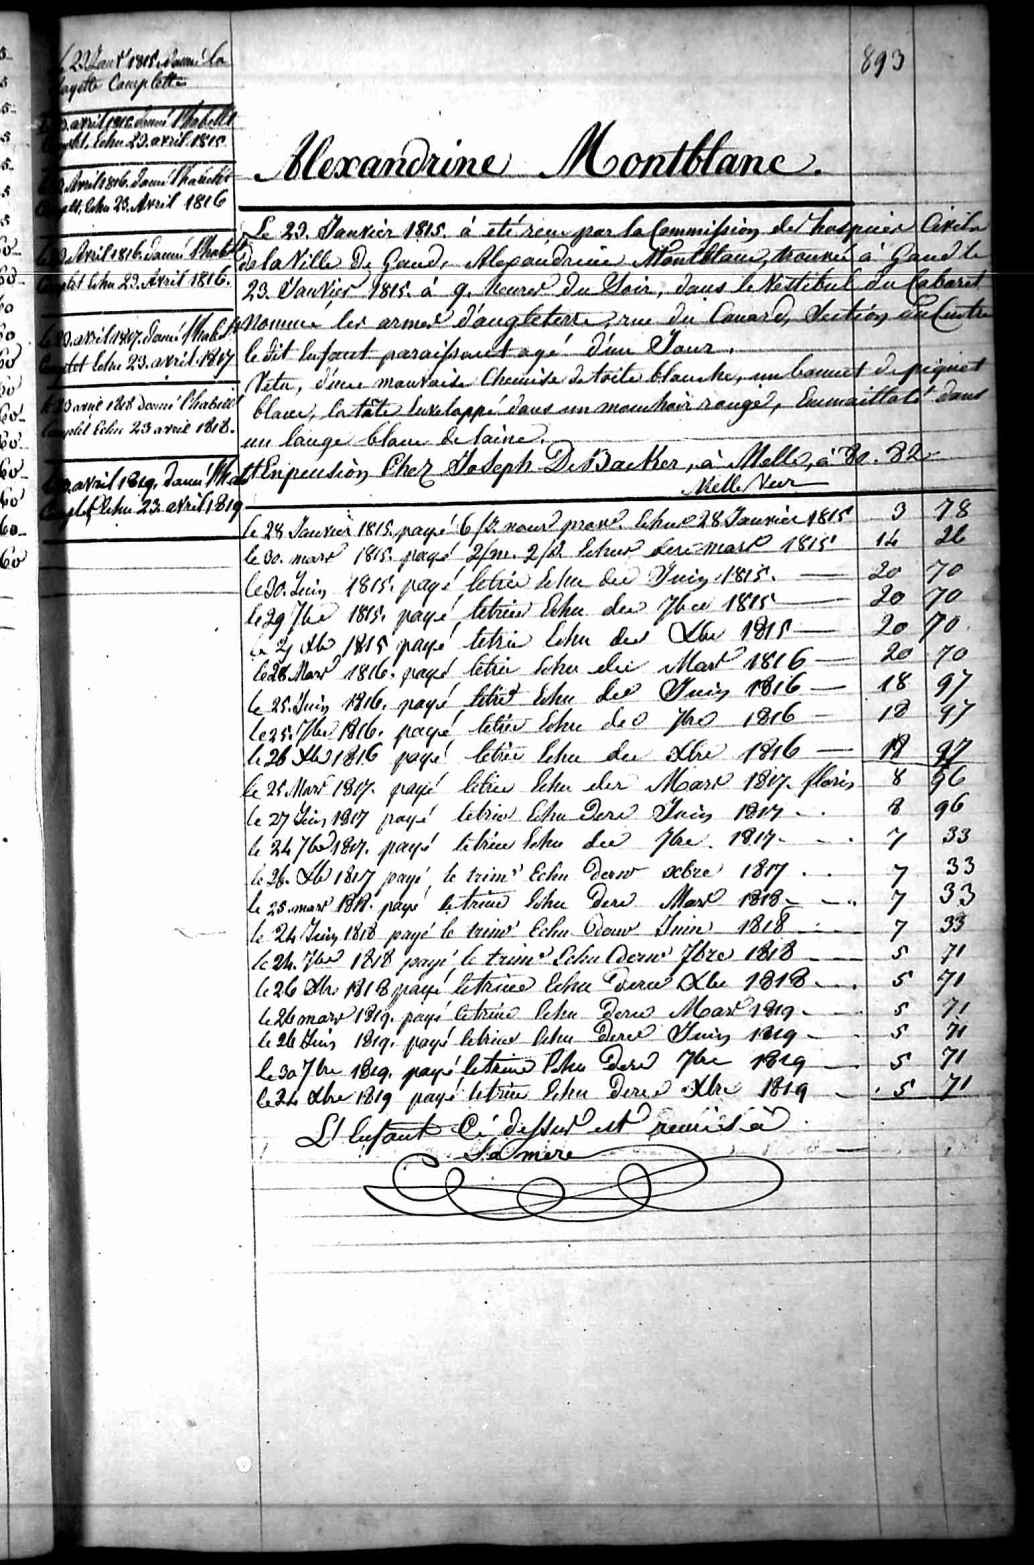 893
Le 23 Janvr 1815. donné la
Layette Complette
avril 1815 donné l'habillt
Complt. Echu 23. avril 1815.
Avril 1816. donné l'habillt
Complt. Echu 23. Avril 1816
Avril 1816. donné l'habillt
Complet Echu 23. Avril 1816.
le 23. avril 1817. donné l'habillt
Complet Echu 23. avril 1817
le 23 avril 1818 donné l'habillt
Complet Echu 23 avril 1818.
avril 1819. donné l'habillt
Complet Echu 23. avril 1819
Alexandrine Montblanc.
Le 23. Janvier 1815. à été reçu par la Commission des hospices Civils
de la Ville De Gand, Alexandrine Montblanc, trouvée à Gand le
23. Janvier 1815. à 9. heures du Soir, dans le Vestibul du Cabaret
Nommé les armes d'angleterre, rue du Canard, Section du Centre
le dit Enfant paraissant agé d'un Jour.
Vetu, d'une mauvaise Chemise de toile blanche, un bonnet de piquet
blanc, la tête Enveloppé dans un mouchoir rouge, Emmailloté dans
un lange blanc de laine.
Enpension Chez Joseph De Backer, à Melle, à 80. 82
Melle Veur
le 28 Janvier 1815. payé 6/s nour prove. Echue 28 Janvier 1815 3 78
le 30. mars 1815. payé 2/m. 2/s Echus dere mars 1815 14 26
le 30. Juin 1815. payé, letrie Echu der Juin 1815. — 20 70
le 29 7bre 1815. payé, letrie Echu der 7bre 1815 — 20 70
le 21 Xbr 1815 payé letrie Echu der Xbre 1815 — 20 70
le 28 Mars 1816. payé letrie Echu der Mars 1816 — 20 70
le 25. Juin 1816. payé letrie Echu der Juin 1816 — 18 97
le 25. 7bre 1816. payé letrie Echu der 7bre 1816 — 18 97
le 26 Xbr 1816 payé letrie Echu der Xbre 1816 — 18 97
le 25 Mars 1817. payé letrie Echu der Mars 1817. floris 8 96
le 27 Juin 1817 payé letrie Echu Dere Juin 1817 - . 8 96
le 24 7bre 1817. payé letrie Echu der 7bre. 1817. - . 7 33
le 26. Xbr 1817 payé le trimr Echu derw xbre 1817 . . 7 33
le 25 mars 1818. payé letrime Echu Dere Mars 1818 - . 7 33
le 24 Juin 1818 payé le trimr Echu Derw Juin 1818 - . 7 33
le 24. 7bre 1818 payé le trimr Echu Derw 7bre 1818 - - 5 71
le 26 Xbr 1818 payé letrime Echu Dere Xbre 1818 - . 5 71
le 26 mars 1819. payé letrime Echu Dere Mars 1819 - . 5 71
le 26 Juin 1819. payé letrime Echu Dere Juin 1819 - 5 71
le 30 7bre 1819. payé letrime Echu Dere 7bre 1819 — 5 71
le 24 Xbre 1819 payé letrime Echu Dere Xbre 1819 — 5 71
L'Enfant Ci dessus est remis à
Sa mère